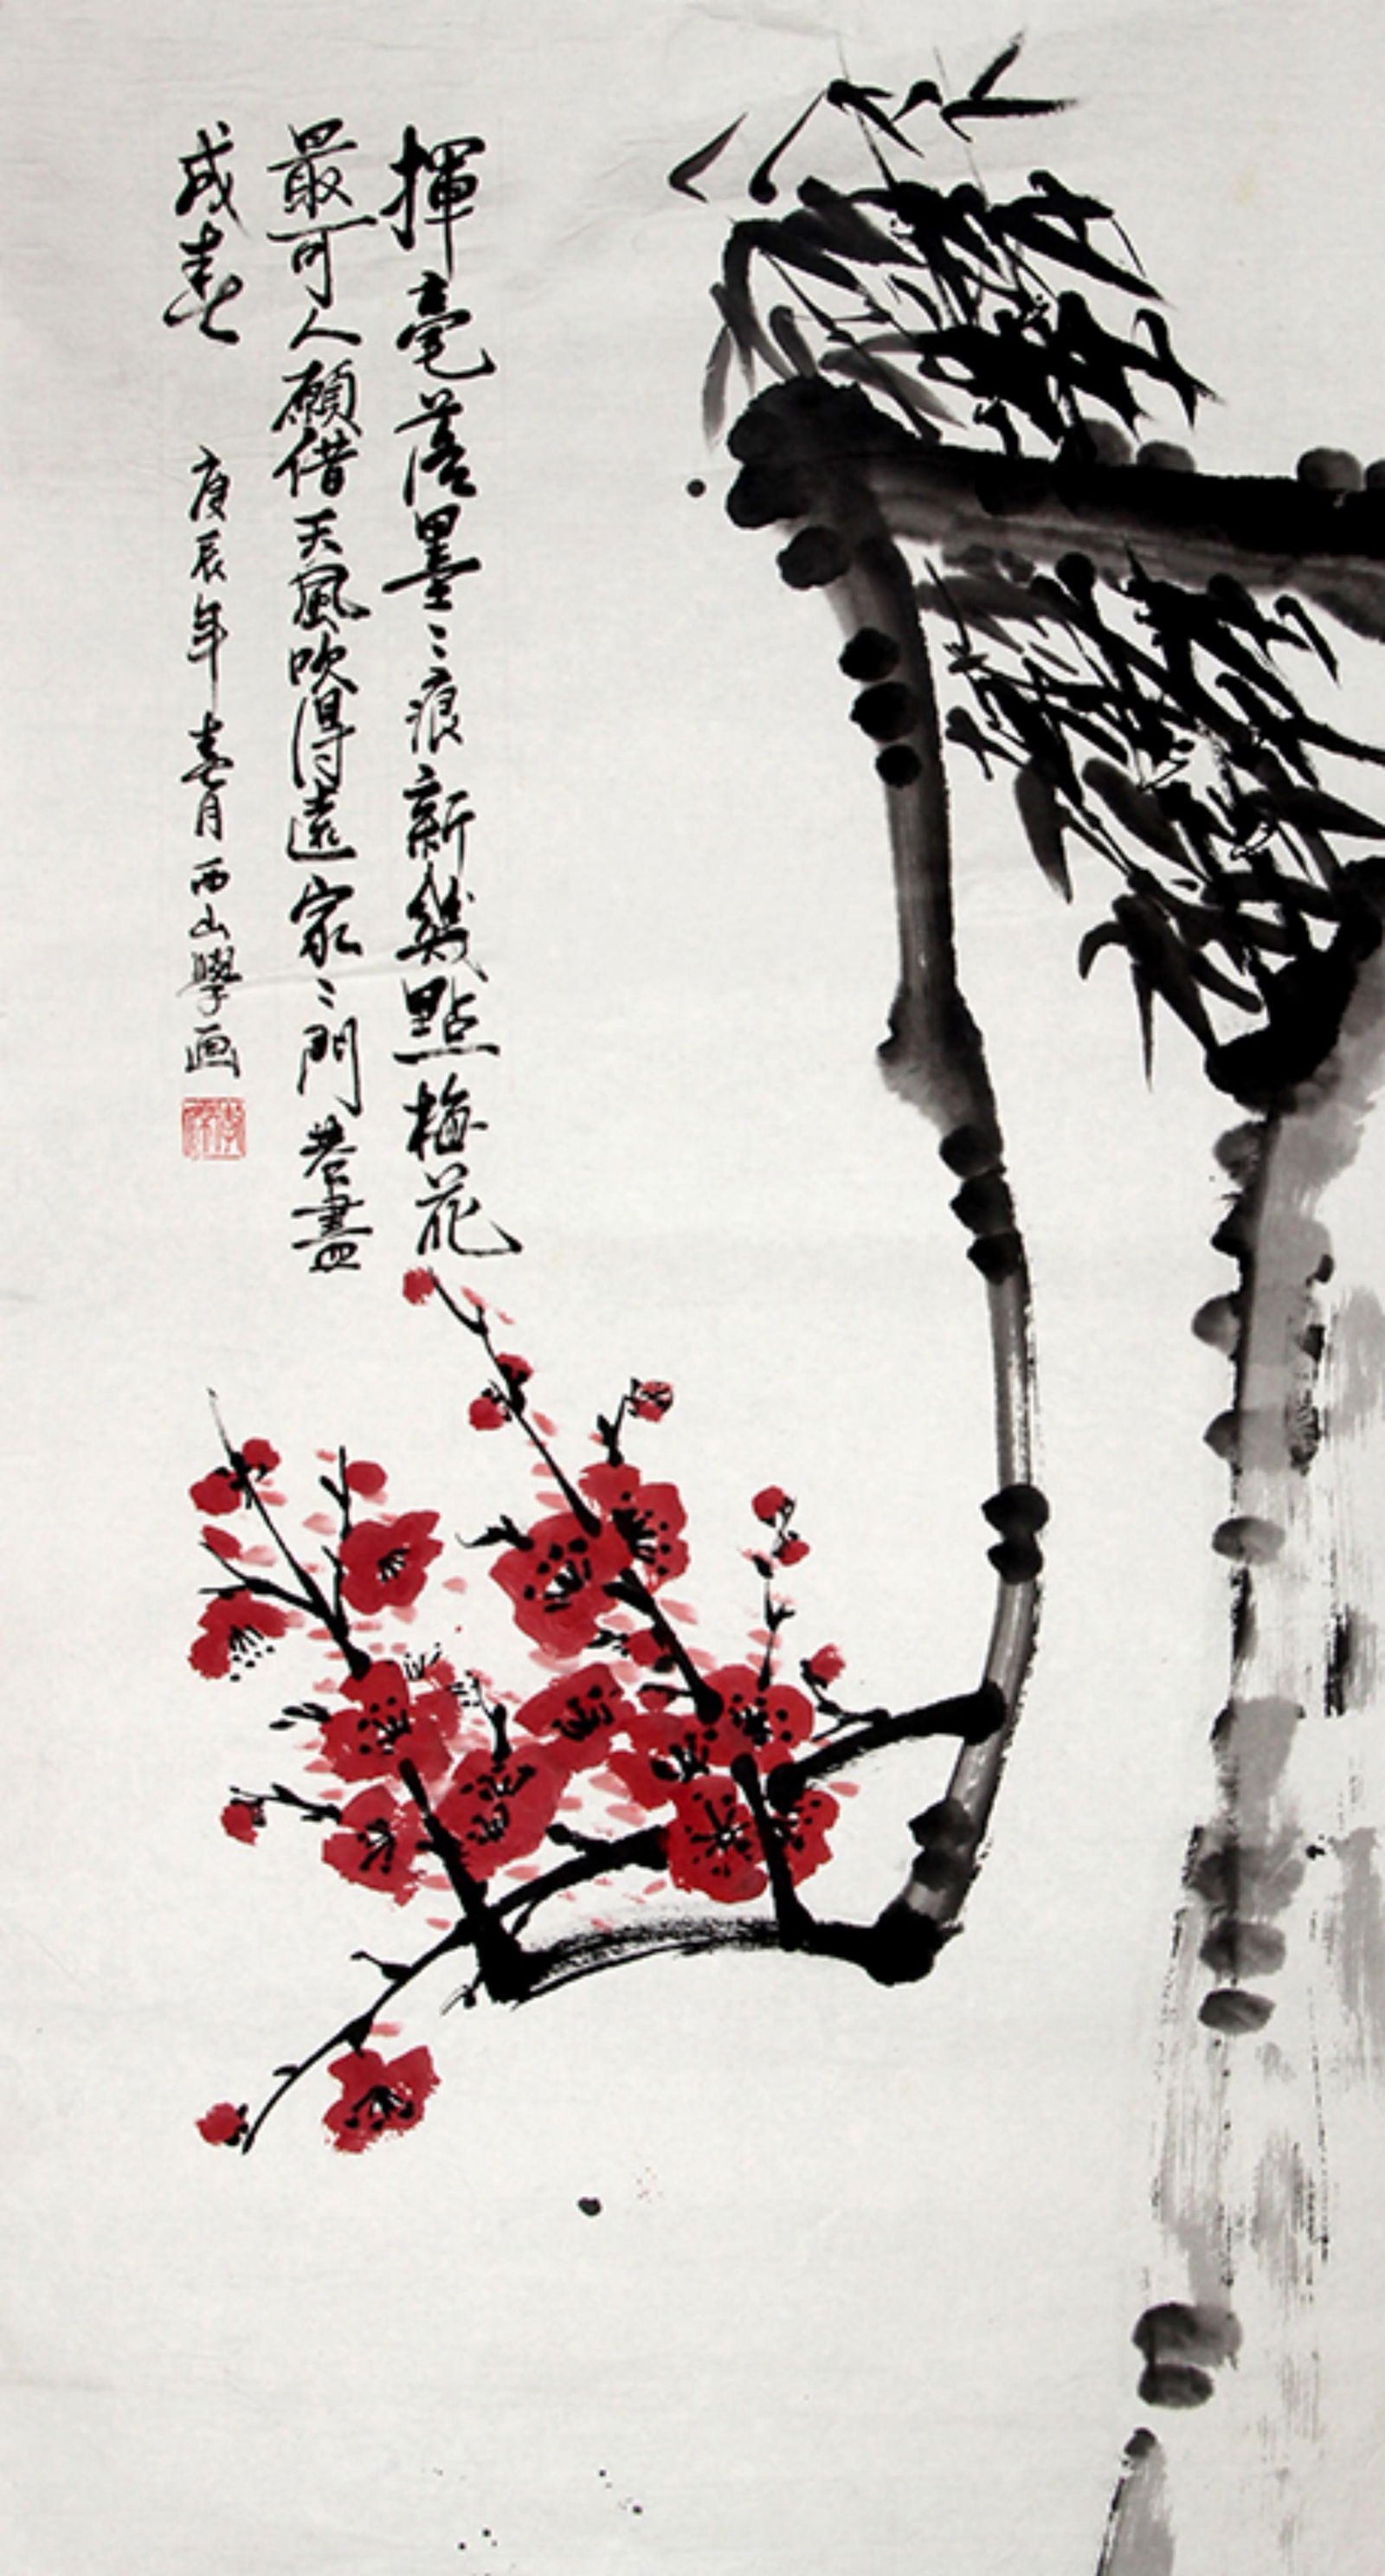 揮毫落墨墨痕新幾點梅花
最可人願借天風吹得遠家家門巷盡
成春 庚辰年春月西山學画